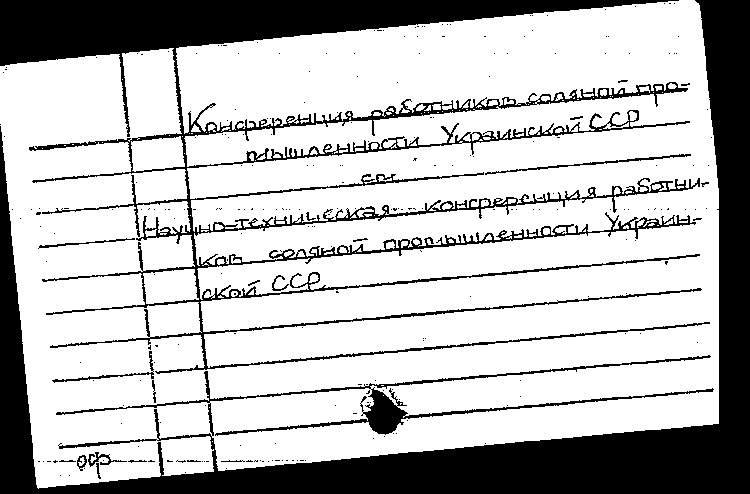 Конференция работников соляной про-
мышленности Украинской ССР
см.
Научно-техническая конференция работни-
ков соляной промышленности Украин-
ской ССР.
оф